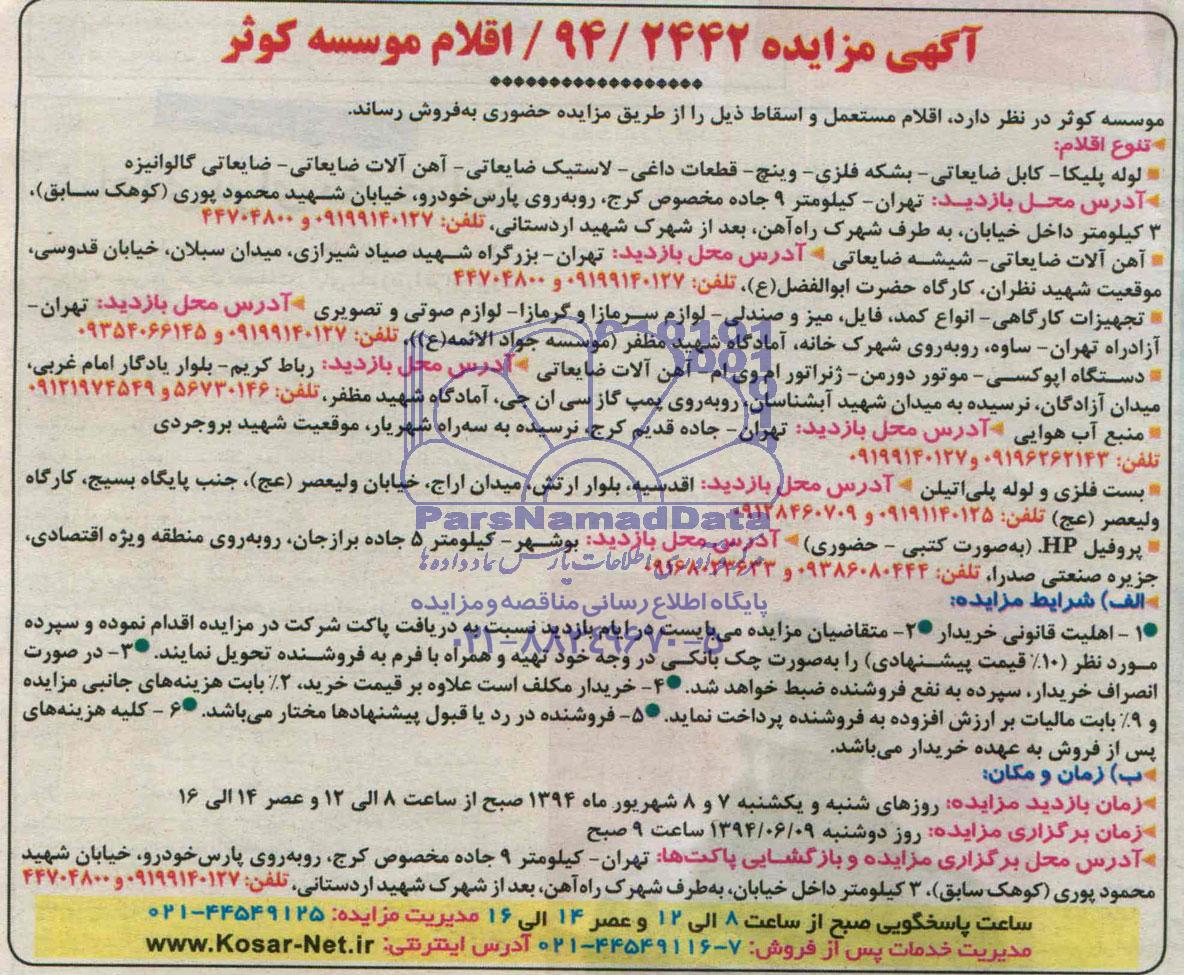 آگهی مزایده ۲۴۴۲ /۹۴ / اقلام موسسه کوثر
موسسه کوثر در نظر دارد، اقلام مستعمل و اسقاط ذیل را از طریق مزایده حضوری به‌فروش رساند.
تنوع اقلام:
لوله پلیکا- کابل ضایعاتی- بشکه فلزی- وینچ- قطعات داغی- لاستیک ضایعاتی- آهن آلات ضایعاتی- ضایعاتی گالوانیزه
آدرس محل بازدید: تهران- کیلومتر ۹ جاده مخصوص کرج، روبه‌روی پارس‌خودرو، خیابان شهید محمود پوری (کوهک سابق)،
۳ کیلومتر داخل خیابان، به طرف شهرک راه‌آهن، بعد از شهرک شهید اردستانی، تلفن: ۰۹۱۹۹۱۴۰۱۲۷ و ۴۴۷۰۴۸۰۰
آهن آلات ضایعاتی- شیشه ضایعاتی آدرس محل بازدید: تهران- بزرگراه شهید صیاد شیرازی، میدان سبلان، خیابان قدوسی،
موقعیت شهید نظران، کارگاه حضرت ابوالفضل(ع)، تلفن: ۰۹۱۹۹۱۴۰۱۲۷ و ۴۴۷۰۴۸۰۰
تجهیزات کارگاهی- انواع کمد، فایل، میز و صندلی- لوازم سرمازا و گرمازا- لوازم صوتی و تصویری آدرس محل بازدید: تهران-
آزادراه تهران- ساوه، روبه‌روی شهرک خانه، آمادگاه شهید مظفر (موسسه جواد الائمه(ع))، تلفن: ۰۹۱۹۹۱۴۰۱۲۷ و ۰۹۳۵۴۰۶۶۱۴۵
دستگاه اپوکسی- موتور دورمن- ژنراتور ام وی ام- آهن آلات ضایعاتی آدرس محل بازدید: رباط کریم- بلوار یادگار امام غربی،
میدان آزادگان، نرسیده به میدان شهید آبشناسان، روبه‌روی پمپ گاز سی ان جی، آمادگاه شهید مظفر، تلفن: ۵۶۷۳۰۱۴۶ و ۰۹۱۲۱۹۷۴۵۴۹
منبع آب هوایی آدرس محل بازدید: تهران- جاده قدیم کرج، نرسیده به سه‌راه شهریار، موقعیت شهید بروجردی
تلفن: ۰۹۱۹۶۲۶۲۱۴۳ و۰۹۱۹۹۱۴۰۱۲۷
بست فلزی و لوله پلی‌اتیلن آدرس محل بازدید: اقدسیه، بلوار ارتش، میدان اراج، خیابان ولیعصر (عج)، جنب پایگاه بسیج، کارگاه
ولیعصر (عج) تلفن: ۰۹۱۹۱۱۴۰۱۲۵ و ۰۹۱۲۸۴۶۰۷۰۹
پروفیل HP. (به‌صورت کتبی - حضوری) آدرس محل بازدید: بوشهر- کیلومتر ۵ جاده برازجان، روبه‌روی منطقه ویژه اقتصادی،
جزیره صنعتی صدرا، تلفن: ۰۹۳۸۶۰۸۰۴۴۴ و ۰۹۱۶۸۰۲۳۶۴۳
الف) شرایط مزایده:
۱- اهلیت قانونی خریدار ۲- متقاضیان مزایده می‌بایست در ایام بازدید نسبت به دریافت پاکت شرکت در مزایده اقدام نموده و سپرده
مورد نظر (۱۰٪ قیمت پیشنهادی) را به‌صورت چک بانکی در وجه خود تهیه و همراه با فرم به فروشنده تحویل نمایند. ۳- در صورت
انصراف خریدار، سپرده به نفع فروشنده ضبط خواهد شد. ۴- خریدار مکلف است علاوه بر قیمت خرید، ۲٪ بابت هزینه‌های جانبی مزایده
و ۹٪ بابت مالیات بر ارزش افزوده به فروشنده پرداخت نماید. ۵- فروشنده در رد یا قبول پیشنهادها مختار می‌باشد. ۶- کلیه هزینه‌های
پس از فروش به عهده خریدار می‌باشد.
ب) زمان و مکان:
زمان بازدید مزایده: روزهای شنبه و یکشنبه ۷ و ۸ شهریور ماه ۱۳۹۴ صبح از ساعت ۸ الی ۱۲ و عصر ۱۴ الی ۱۶
زمان برگزاری مزایده: روز دوشنبه ۱۳۹۴/۰۶/۰۹ ساعت ۹ صبح
آدرس محل برگزاری مزایده و بازگشایی پاکت‌ها: تهران- کیلومتر ۹ جاده مخصوص کرج، روبه‌روی پارس‌خودرو، خیابان شهید
محمود پوری (کوهک سابق)، ۳ کیلومتر داخل خیابان، به‌طرف شهرک راه‌آهن، بعد از شهرک شهید اردستانی، تلفن: ۰۹۱۹۹۱۴۰۱۲۷ و ۴۴۷۰۴۸۰۰
ساعت پاسخگویی صبح از ساعت ۸ الی ۱۲ و عصر ۱۴ الی ۱۶ مدیریت مزایده: ۰۲۱-۴۴۵۴۹۱۲۵
مدیریت خدمات پس از فروش: ۷-۰۲۱-۴۴۵۴۹۱۱۶ آدرس اینترنتی: www.Kosar-Net.ir
ParsNamadData
پایگاه اطلاع رسانی مناقصه و مزایده
۰۲۱-۸۸۲۴۹۶۷۰-۵